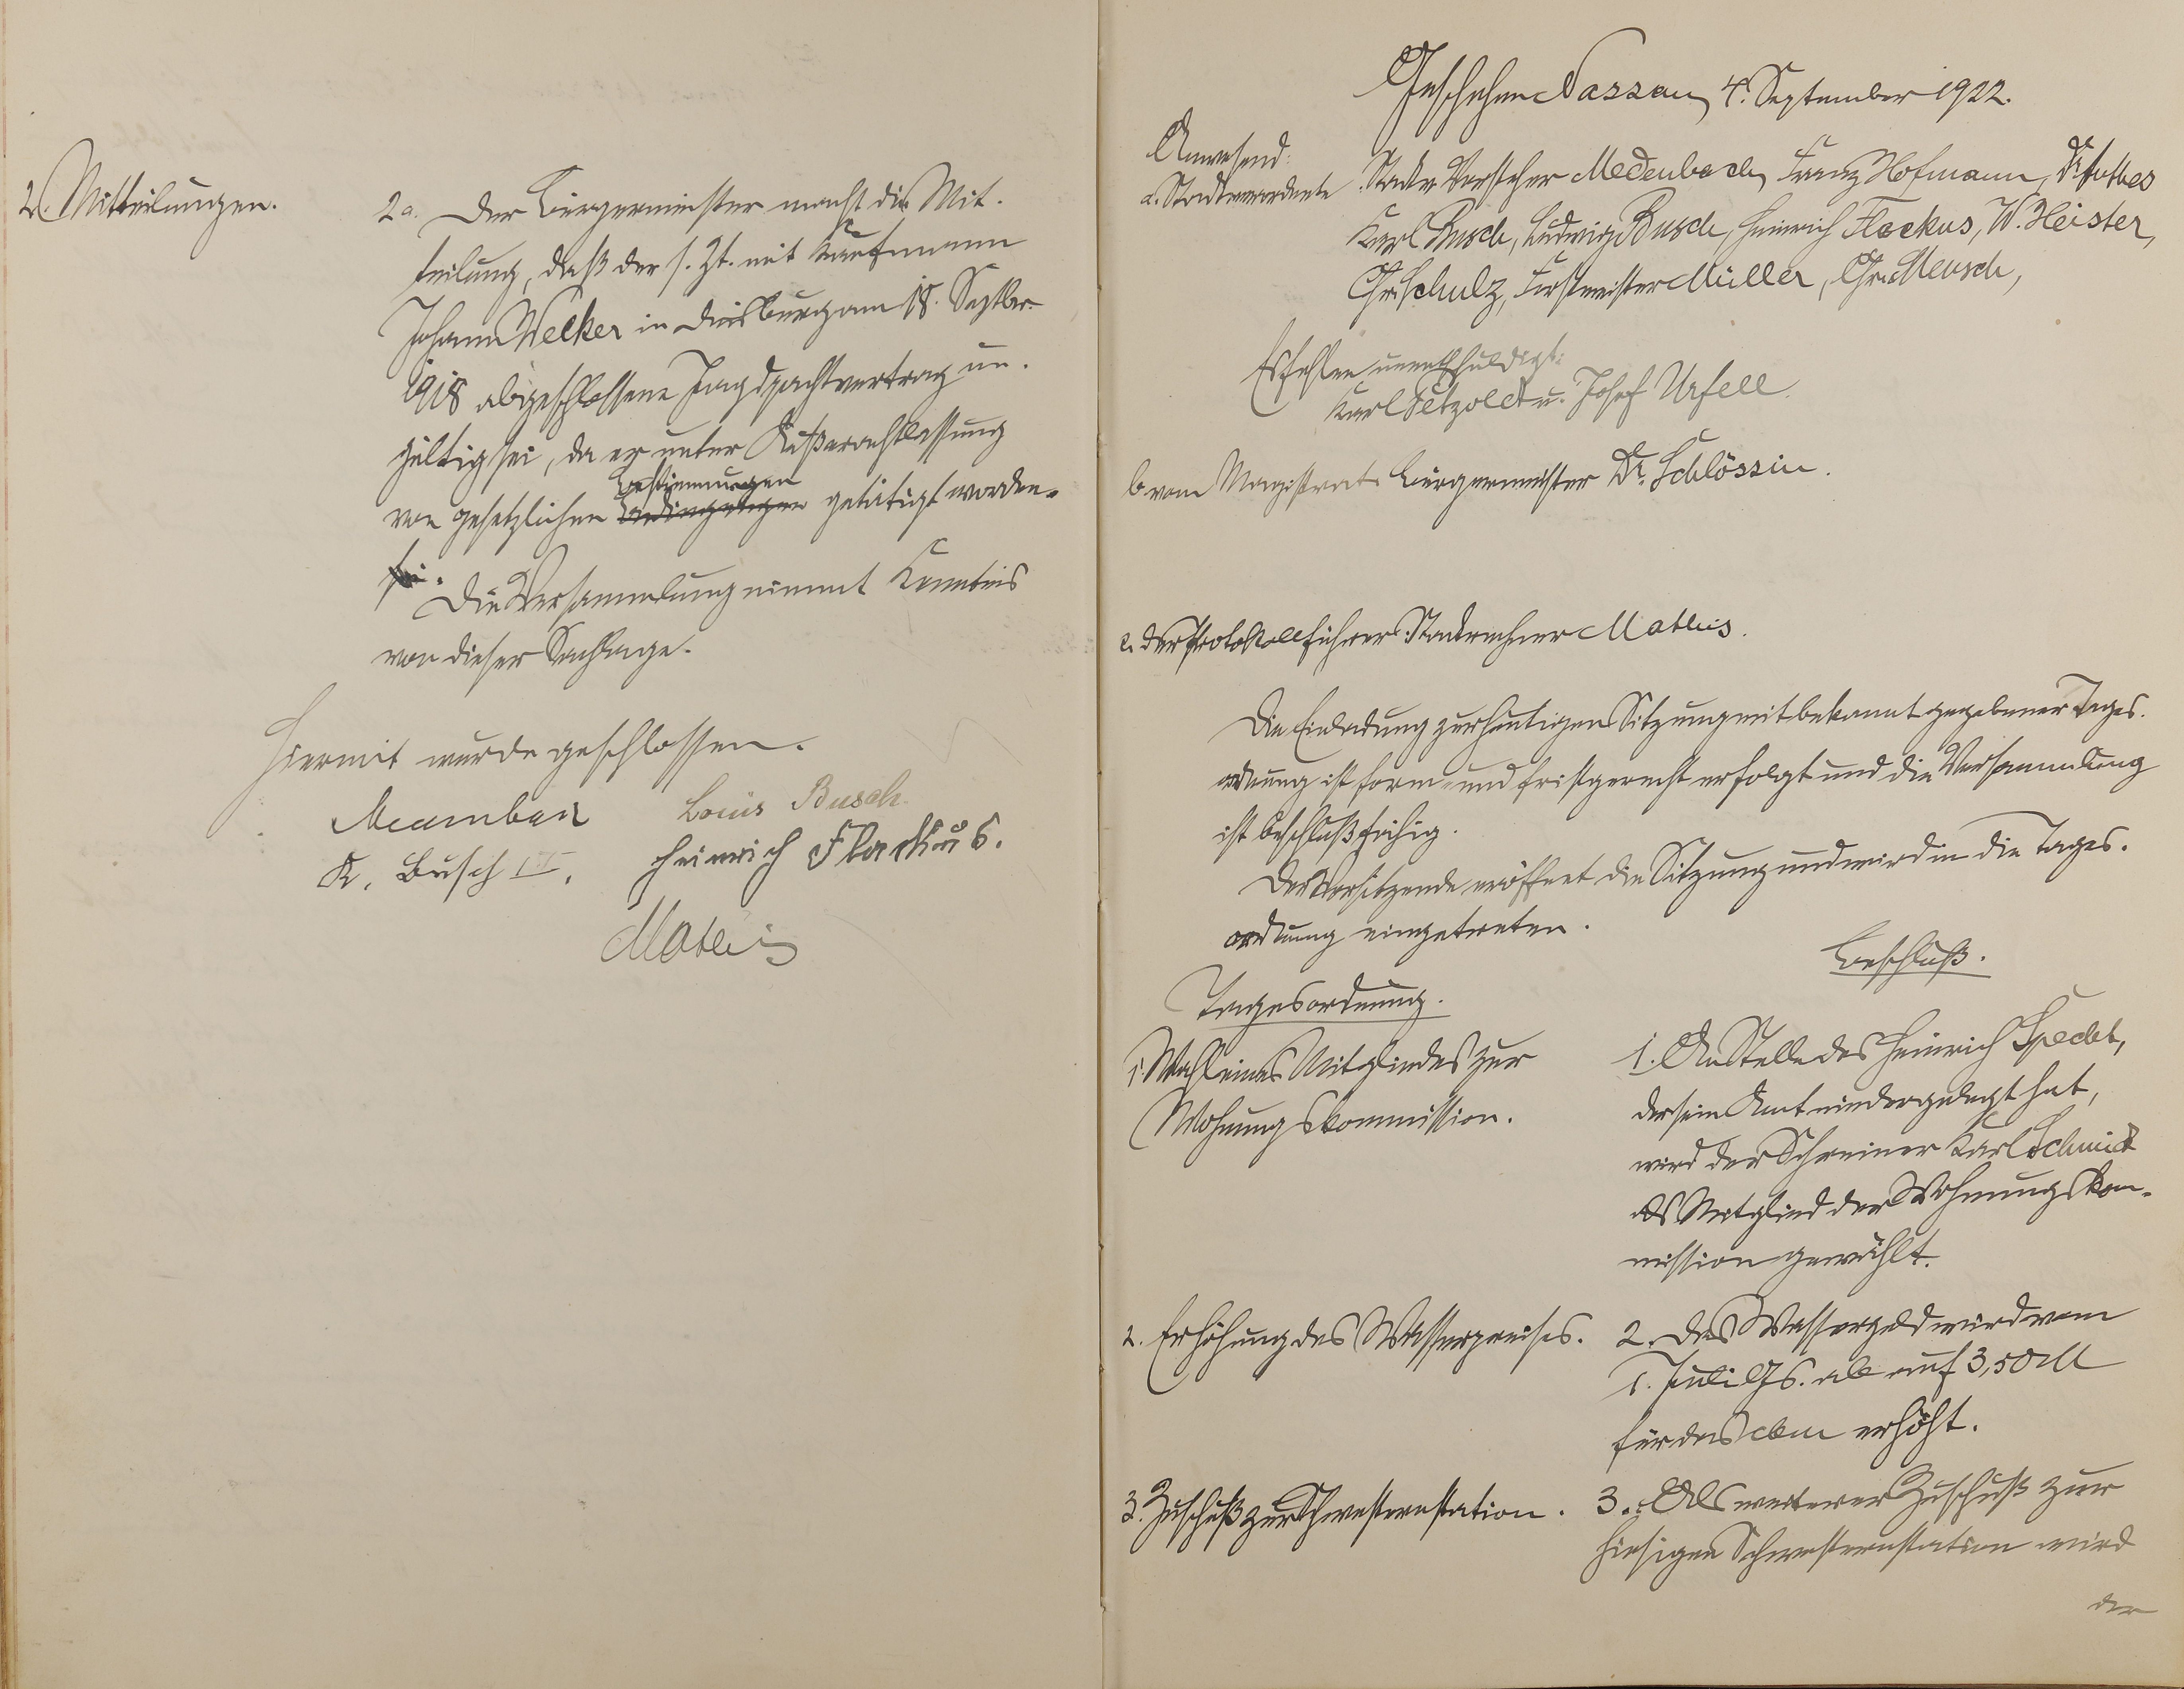 2. Mitteilungen.
2a. Der Bürgermeister macht die Mit-
teilung, daß der s. Zt. mit Kaufmann
Johann Welker in Duisburg am 18. Septbr.
1918 abgeschlossene Jagdpachtvertrag un-
gültig sei, da er unter Außerachtlassung
Bestimmungen
von gesetzlichen Bedingungen getätigt worden
sei.
Die Versammlung nimmt Kenntnis
von dieser Sachlage.
Hiermit wurde geschlossen.
Louis Busch.
K. Busch II. Heinrich Flockus.
Matheis
Geschehen Nassau, 4. September 1922.
Anwesend:
a. Stadtverordnete Stadtv. Vorsteher Medenbach, Franz Hofmann, Dr.
Karl Busch, Ludwig Busch, Heinrich Flockus, W. Heister,
Chr. Schulz, Forstmeister Müller, Chr. Meusch,
Es fehlen unentschuldigt:
Karl Petzoldt u. Josef Urfell.
b vom Magistrat Bürgermeister Dr. Schlössin.
c. der Protokollführer: Stadtrechner Matheis.
Die Einladung zur heutigen Sitzung mit bekannt gegebener Tages-
ordnung ist form- und fristgerecht erfolgt und die Versammlung
ist beschlußfähig.
Der Vorsitzende eröffnet die Sitzung und wird in die Tages-
ordnung eingetreten.
Beschluß.
Tagesordnung.
1. Wahl eines Mitgliedes zur
Wohnungskommission.
1. An Stelle des Heinrich Specht,
der sein Amt niedergelegt hat,
wird der Schreiner Karl Schmidt
als Mitglied der Wohnungskom-
mission gewählt.
2. Erhöhung des Wasserpreises.
2. Das Wassergeld wird vom
1. Juli ds. Js. ab auf 3,50 M
für das cbm erhöht.
3. Zuschuß zur Schwesternstation.
3. Als weiterer Zuschuß zur
hiesigen Schwesternstation wird
der